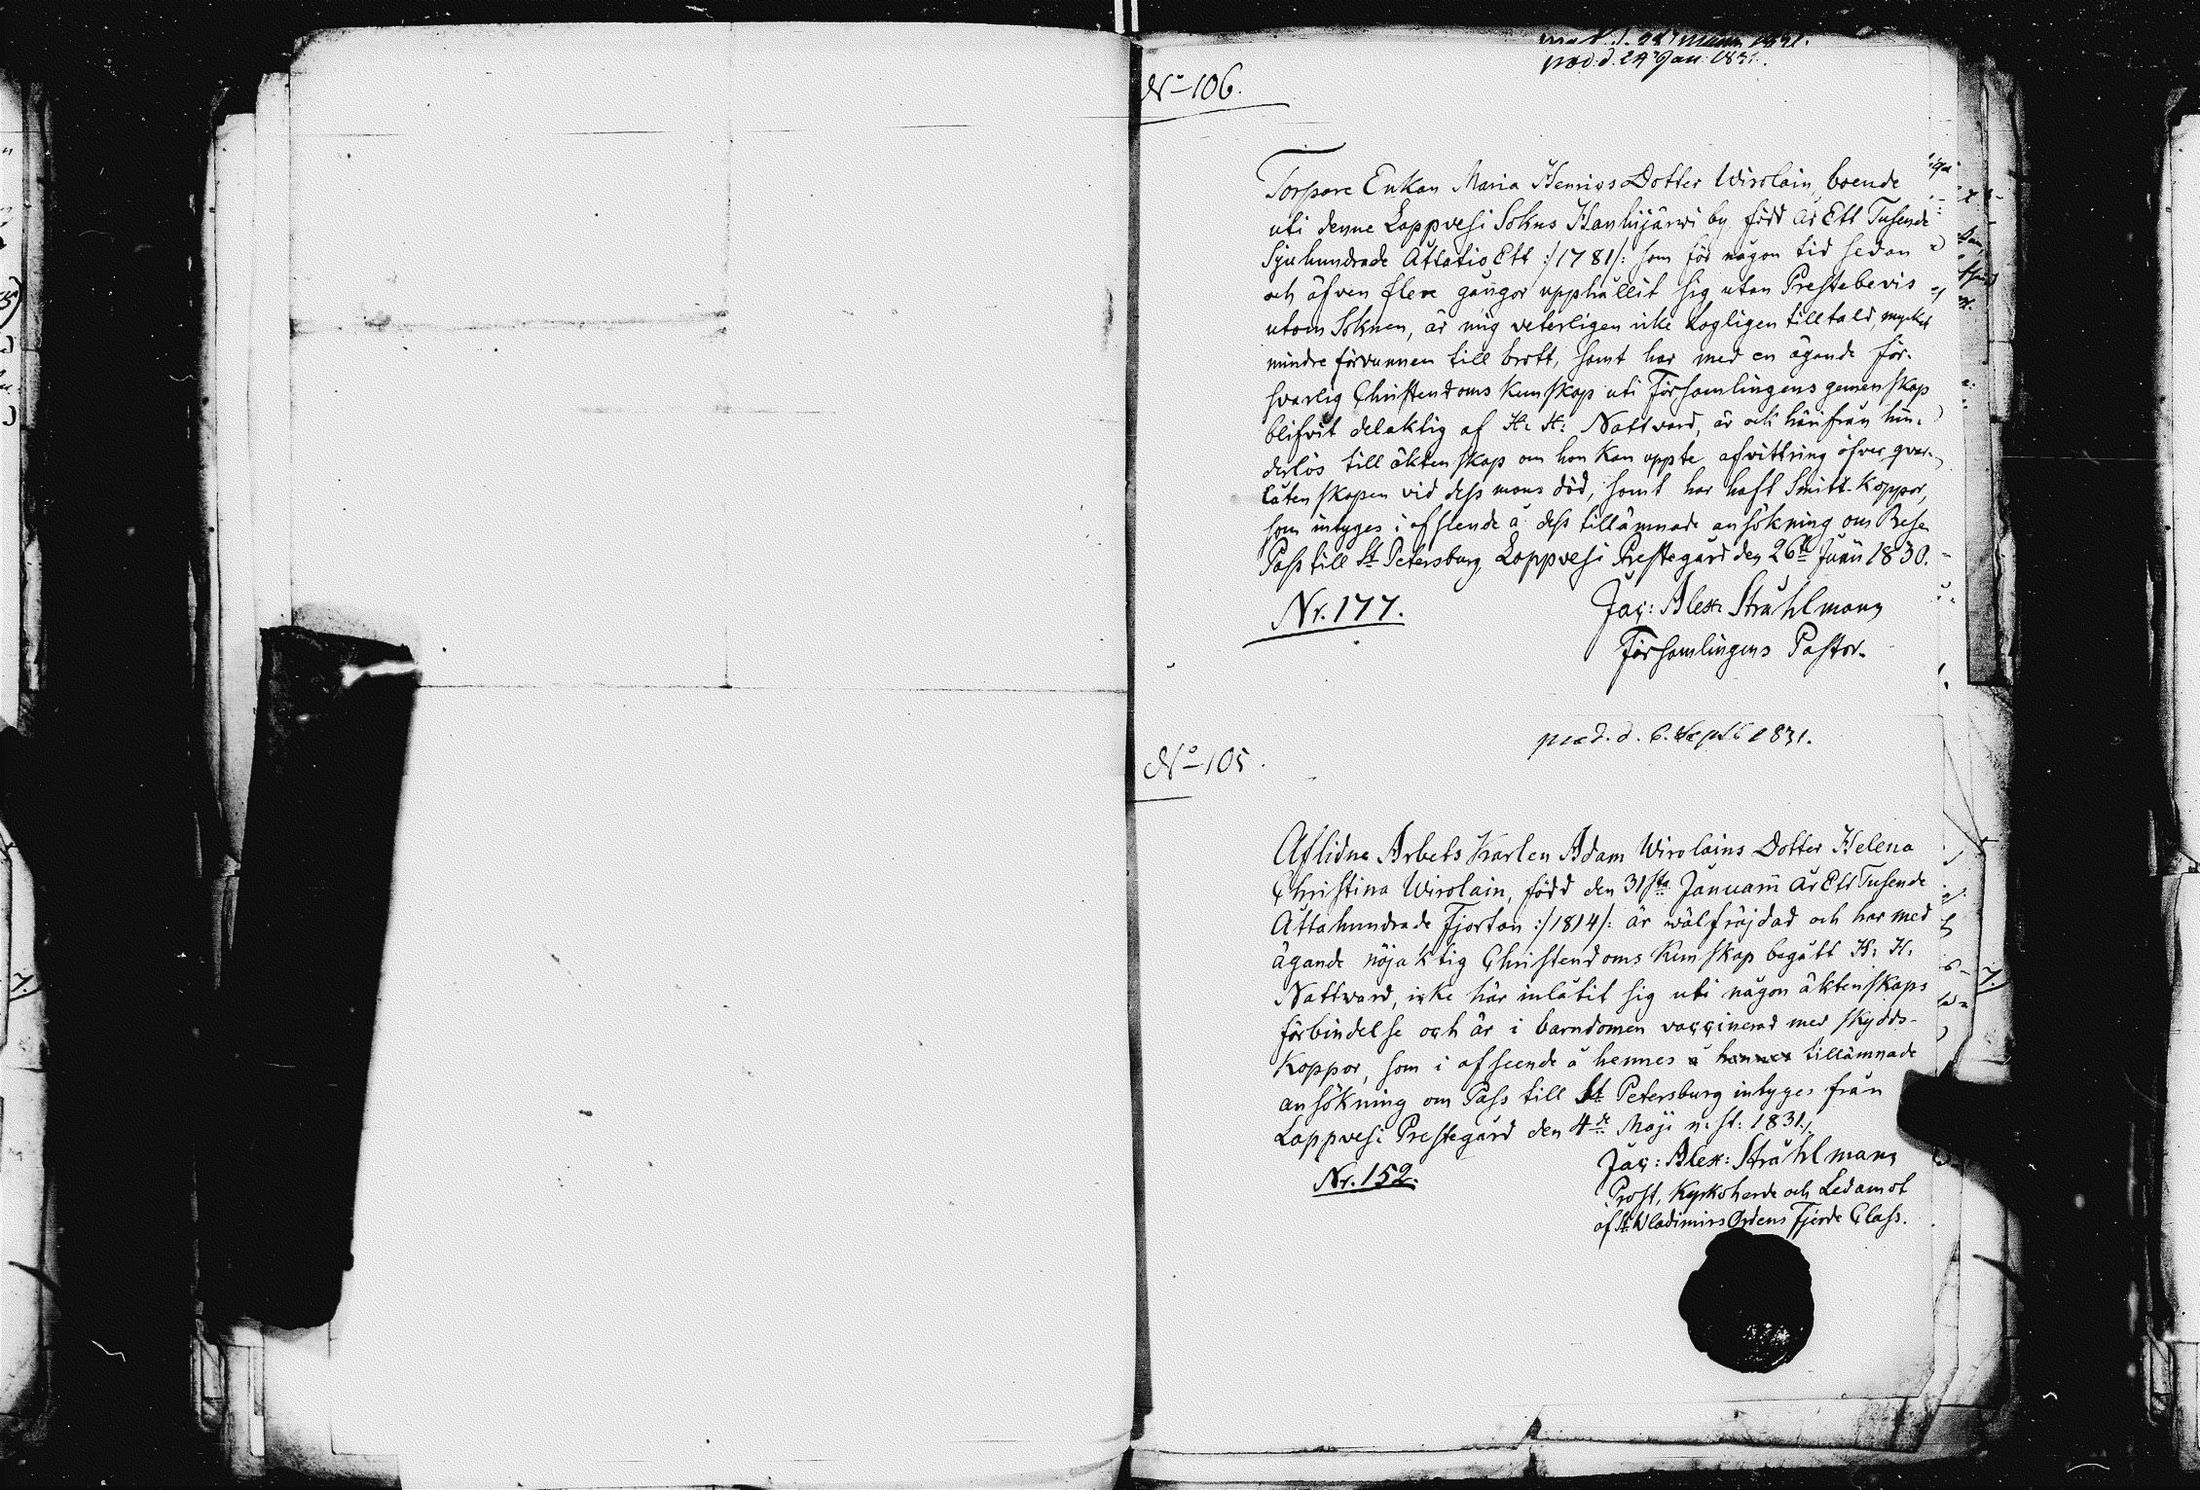 prod. d. 24 Jan. 1831.
No 106.
Torpare Enkan Maria Henrics Dotter Wirolain, boende
uti denne Lappvesi Sokns Hanhijärwi by, född År Ett Tusende
Sjuhundrade Åttatio Ett :/1781/: som för någon tid sedan
och äfven flere gångor upphållit sig utan Prestebevis
utom Soknen, är mig veterligen icke Lagligen tilltald, mycket
mindre förvunnen till brott, samt har med en ägande för-
svarlig Christendoms Kunskap uti Församlingens gemenskap
blifvit delaktig af H: H: Nattvard, är och härifrån hin-
derlös till äktenskap om hon kan uppte afvittring öfver qvar-
låtenskapen vid dess mans död, samt har haft Smitt-Koppor,
som intyges i afseende å dess tillämnade ansökning om Rese
Pass till St Petersburg, Lappvesi Prestegård den 26te Junii 1830.
Nr. 177.
Jac: Alex: Stråhlmann
Församlingens Pastor.
prod. d. 6. Sept 1831.
No 105.
Aflidne Arbets Karlen Adam Wirolains Dotter Helena
Christina Wirolain, född den 31sta Januarii År Ett Tusende
Åttahundrade Fjorton :/1814/: är wälfräjdad och har med
ägande nöjaktig Christendoms Kunskap begått H: H:
Nattvard, icke här inlåtit sig uti någon äktenskaps
förbindelse och är i barndomen vaccinerad med skydds-
Koppor, som i afseende å hennes å hennes tillämnade
ansökning om Pass till St Petersburg intyges från
Lappvesi Prestegård den 4de Maji n: st: 1831./.
Nr. 152.
Jac: Alex: Stråhlmann
Prost, Kyrkoherde och Ledamot
af St Wladimirs Ordens Fjerde Class.